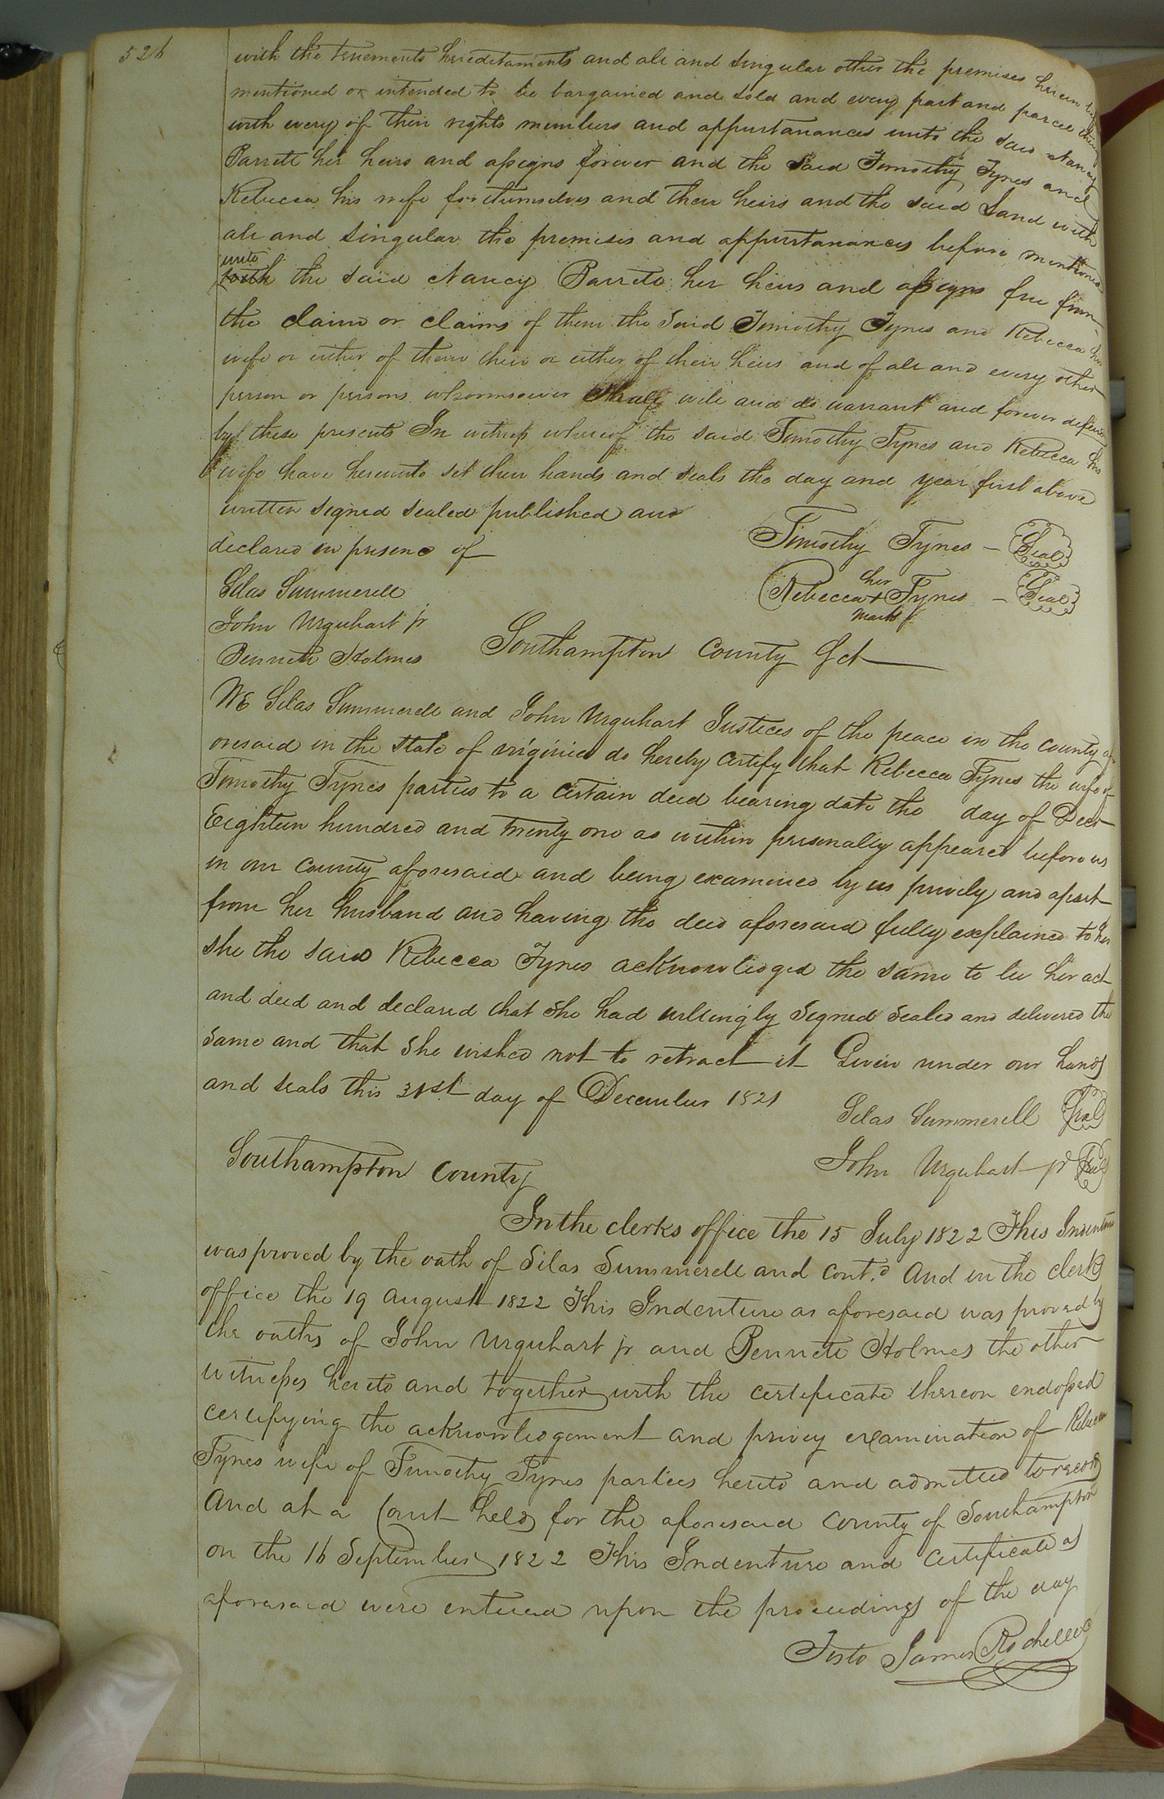 526
with the tenements hereditaments and all and singular other the premises herein
mentioned or intended to be bargained and sold and every part and parcel
with every of their rights members and appurtanances unto the said Nancy
Barrett her heirs and assigns forever and the said Timothy Tynes and
Rebecca his wife for themselves and their heirs and the said Land with
all and singular the premises and appurtanances before mentioned
unto
the said Nancy Barrett her heirs and assigns free from
the claim or claims of them the said Timothy Tynes and Rebecca his
wife or either of them their or either of their heirs and of all and every other
person or persons whomsoever shall will and do warrant and forever defend
by these presents In witness whereof the said Timothy Tynes and Rebecca his
wife have hereunto set their hands and seals the day and year first above
written signed sealed published and
declared in presenc of
Timothy Tynes – Seal
her
Rebecca + Tynes – Seal
mark
Silas Summerell
John Urquhart jr
Bennett Holmes
Southampton County Sct
We Silas Summerell and John Urquhart Justices of the peace in the county af
oresaid in the State of virginia do hereby certify that Rebecca Tynes the wife of
Timothy Tynes parties to a certain deed bearing date the day of Decr
Eighteen hundred and twenty one as within personally appeared before us
in our county aforesaid and being examined by us privily and apart
from her husband and having the deed aforesaid fully explained to her
she the said Rebecca Tynes acknowledged the same to be her act
and deed and declared that she had willingly signed sealed and delivered the
same and that she wished not to retract it Given under our hands
and seals this 31st day of December 1821
Silas Summerell Seal
John Urquhart jr Seal
Southampton County
In the clerks office the 15 July 1822 This Indenture
was proved by the oath of Silas Summerell and Cont.d And in the clerks
office the 19 august 1822 This Indenture as aforesaid was proved by
the oaths of John Urquhart jr and Bennett Holmes the other
witnesses hereto and together with the certificate thereon endossed
certifying the acknowledgement and privy examination of Rebecca
Tynes wife of Timothy Tynes parties hereto and admitted to record
And at a Court held for the aforesaid County of Southampton
on the 16 September 1822 This Indenture and Certificate as
aforesaid were entered upon the proceedings of the day
Teste James Rochelle